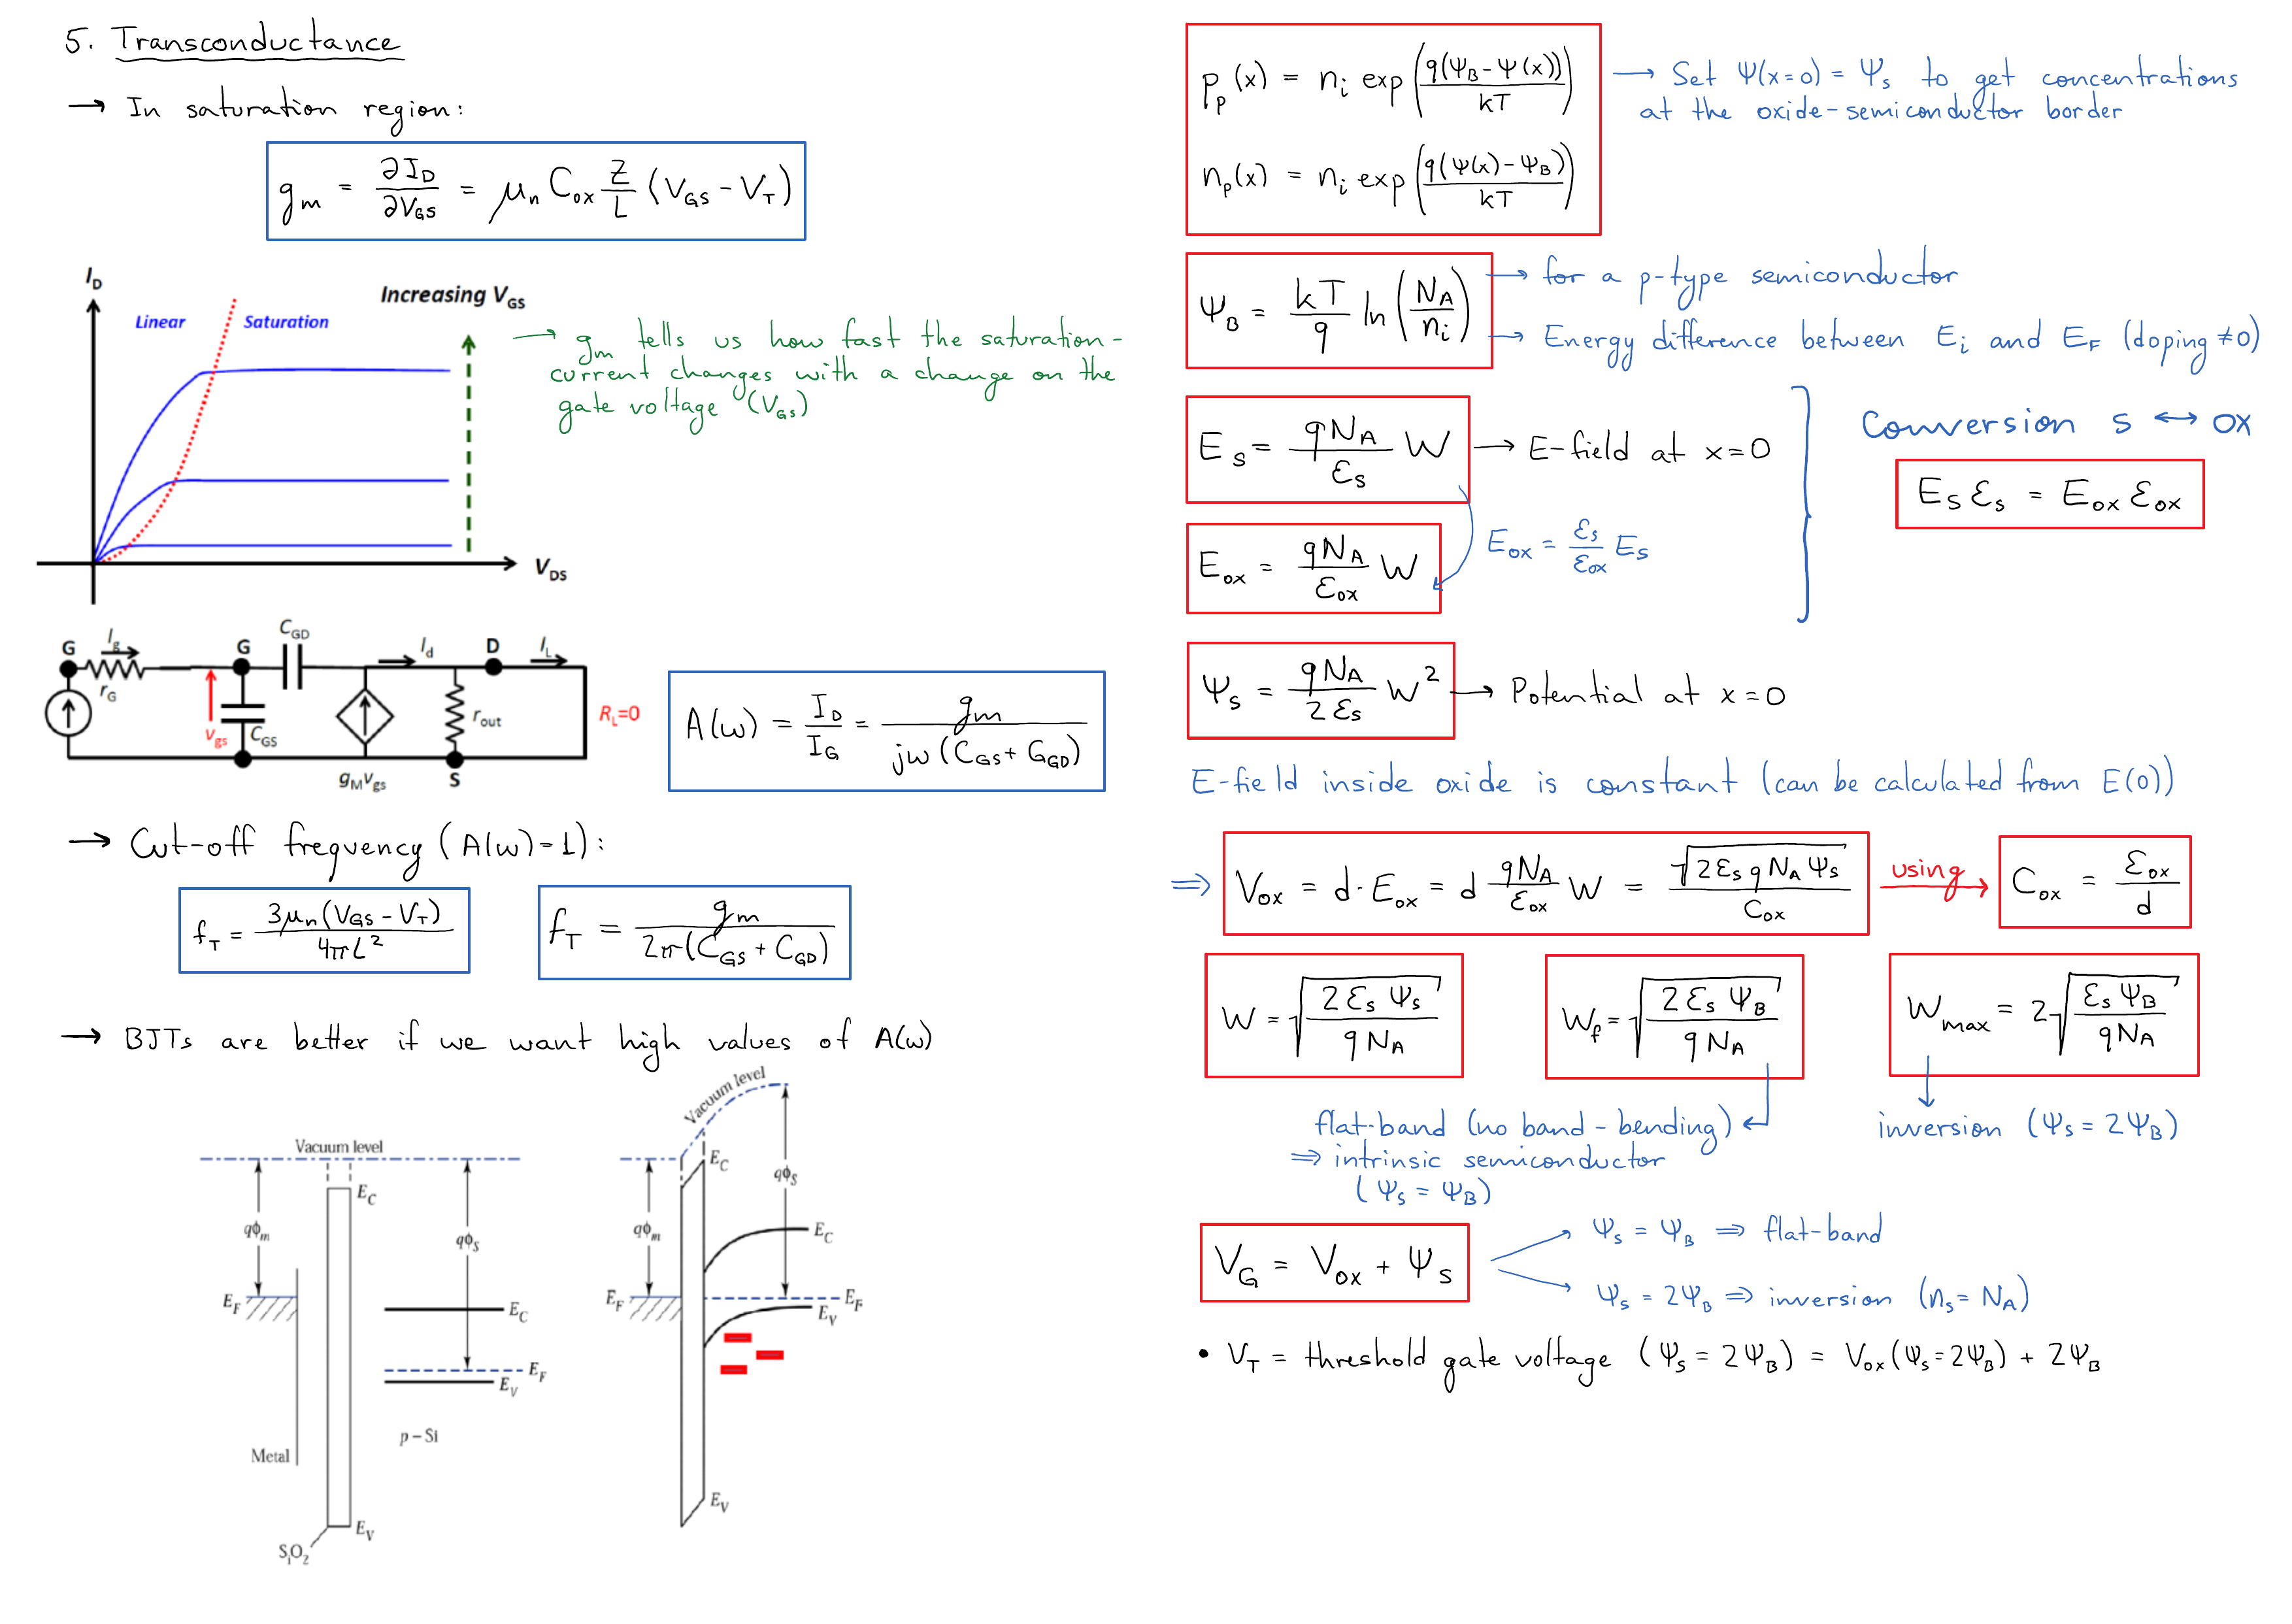 5. Transconductance
→ In saturation region:
g_m = ∂I_D/∂V_GS = μ_n C_ox Z/L (V_GS - V_T)
I_D
Increasing V_GS
Linear
Saturation
V_DS
→ g_m tells us how fast the saturation-
current changes with a change on the
gate voltage (V_GS)
G
I_g
r_G
G
C_GD
I_d
D
I_L
v_gs
C_GS
r_out
R_L=0
g_M v_gs
S
A(ω) = I_D/I_G = g_m/(jw (C_GS + G_GD))
→ Cut-off frequency (A(ω)=1):
f_T = 3μ_n(V_GS - V_T)/(4πL²)
f_T = g_m/(2π(C_GS + C_GD))
→ BJTs are better if we want high values of A(ω)
Vacuum level
qϕ_m
E_C
qϕ_s
E_F
E_C
E_F
E_V
Metal
p – Si
E_V
S_iO_2
Vacuum level
E_C
qϕ_s
qϕ_m
E_C
E_F
E_F
E_V
E_V
p_p(x) = n_i exp(q(Ψ_B - Ψ(x))/kT)
→ Set Ψ(x=0) = Ψ_s to get concentrations
at the oxide-semiconductor border
n_p(x) = n_i exp(q(Ψ(x) - Ψ_B)/kT)
Ψ_B = kT/q ln(N_A/n_i)
→ for a p-type semiconductor
→ Energy difference between E_i and E_F (doping ≠ 0)
E_s = qN_A/ε_s W → E-field at x=0
Conversion s ↔ ox
E_s ε_s = E_ox ε_ox
E_ox = qN_A/ε_ox W
E_ox = ε_s/ε_ox E_s
Ψ_s = qN_A/(2ε_s) W² → Potential at x=0
E-field inside oxide is constant (can be calculated from E(0))
⇒ V_ox = d·E_ox = d qN_A/ε_ox W = √(2ε_s q N_A Ψ_s)/C_ox using → C_ox = ε_ox/d
W = √(2ε_s Ψ_s/(qN_A))
W_f = √(2ε_s Ψ_B/(qN_A))
W_max = 2√(ε_s Ψ_B/(qN_A))
flat-band (no band-bending)
⇒ intrinsic semiconductor
(Ψ_s = Ψ_B)
inversion (Ψ_s = 2Ψ_B)
V_G = V_ox + Ψ_s
Ψ_s = Ψ_B ⇒ flat-band
Ψ_s = 2Ψ_B ⇒ inversion (n_s = N_A)
• V_T = threshold gate voltage (Ψ_s = 2Ψ_B) = V_ox(Ψ_s = 2Ψ_B) + 2Ψ_B